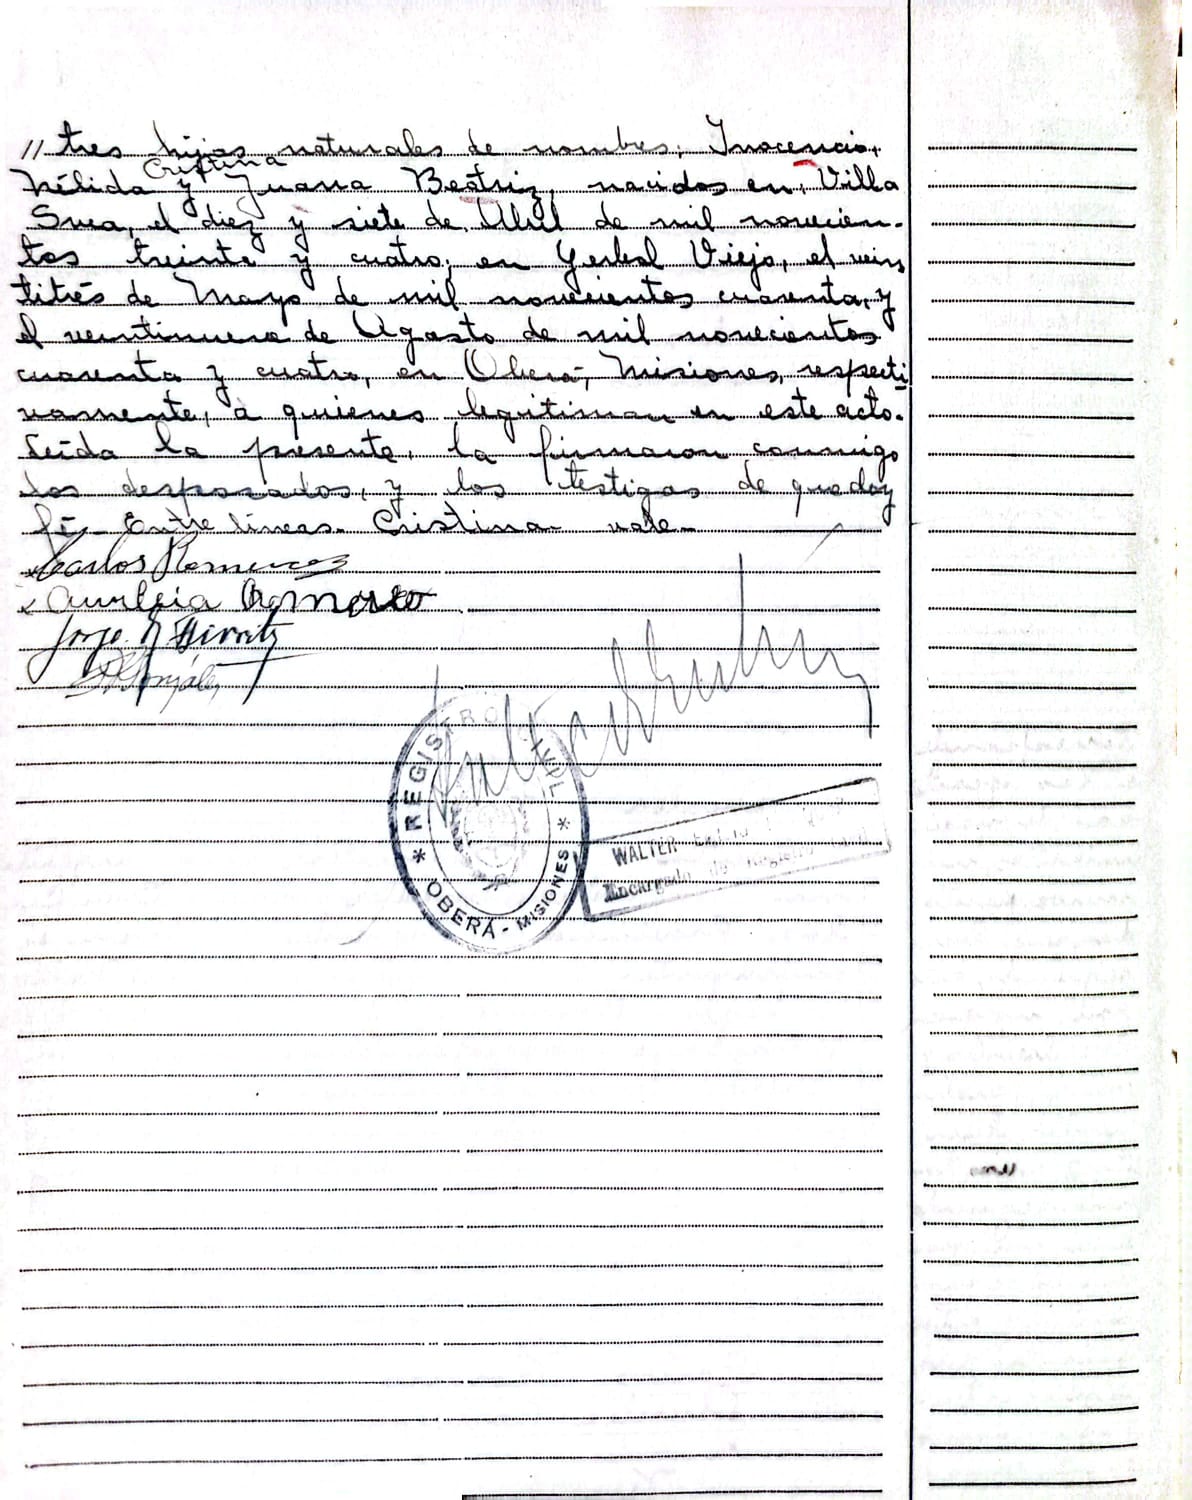 // tres hijos naturales de nombres; Inocencio,
Cristina
Nélida y Juana Beatriz, nacidos en, Villa
Svea, el diez y siete de Abril de mil novecien-
tos treinta y cuatro; en Yerbal Viejo, el vein
titrés de Mayo de mil novecientos cuarenta, y
el veintinueve de Agosto de mil novecientos
cuarenta y cuatro, en Oberá, Misiones, respecti
vamente, a quienes legitiman en este acto.-
Leída la presente, la firmaron conmigo
los desposados, y los testigos de que doy
fé.- Entre líneas- Cristina- vale-
Carlos Romero
Aurelia Romero
Jorge
González
REGISTRO CIVIL
* OBERÁ - MISIONES *
WALTER
Encargado de Registro Civil